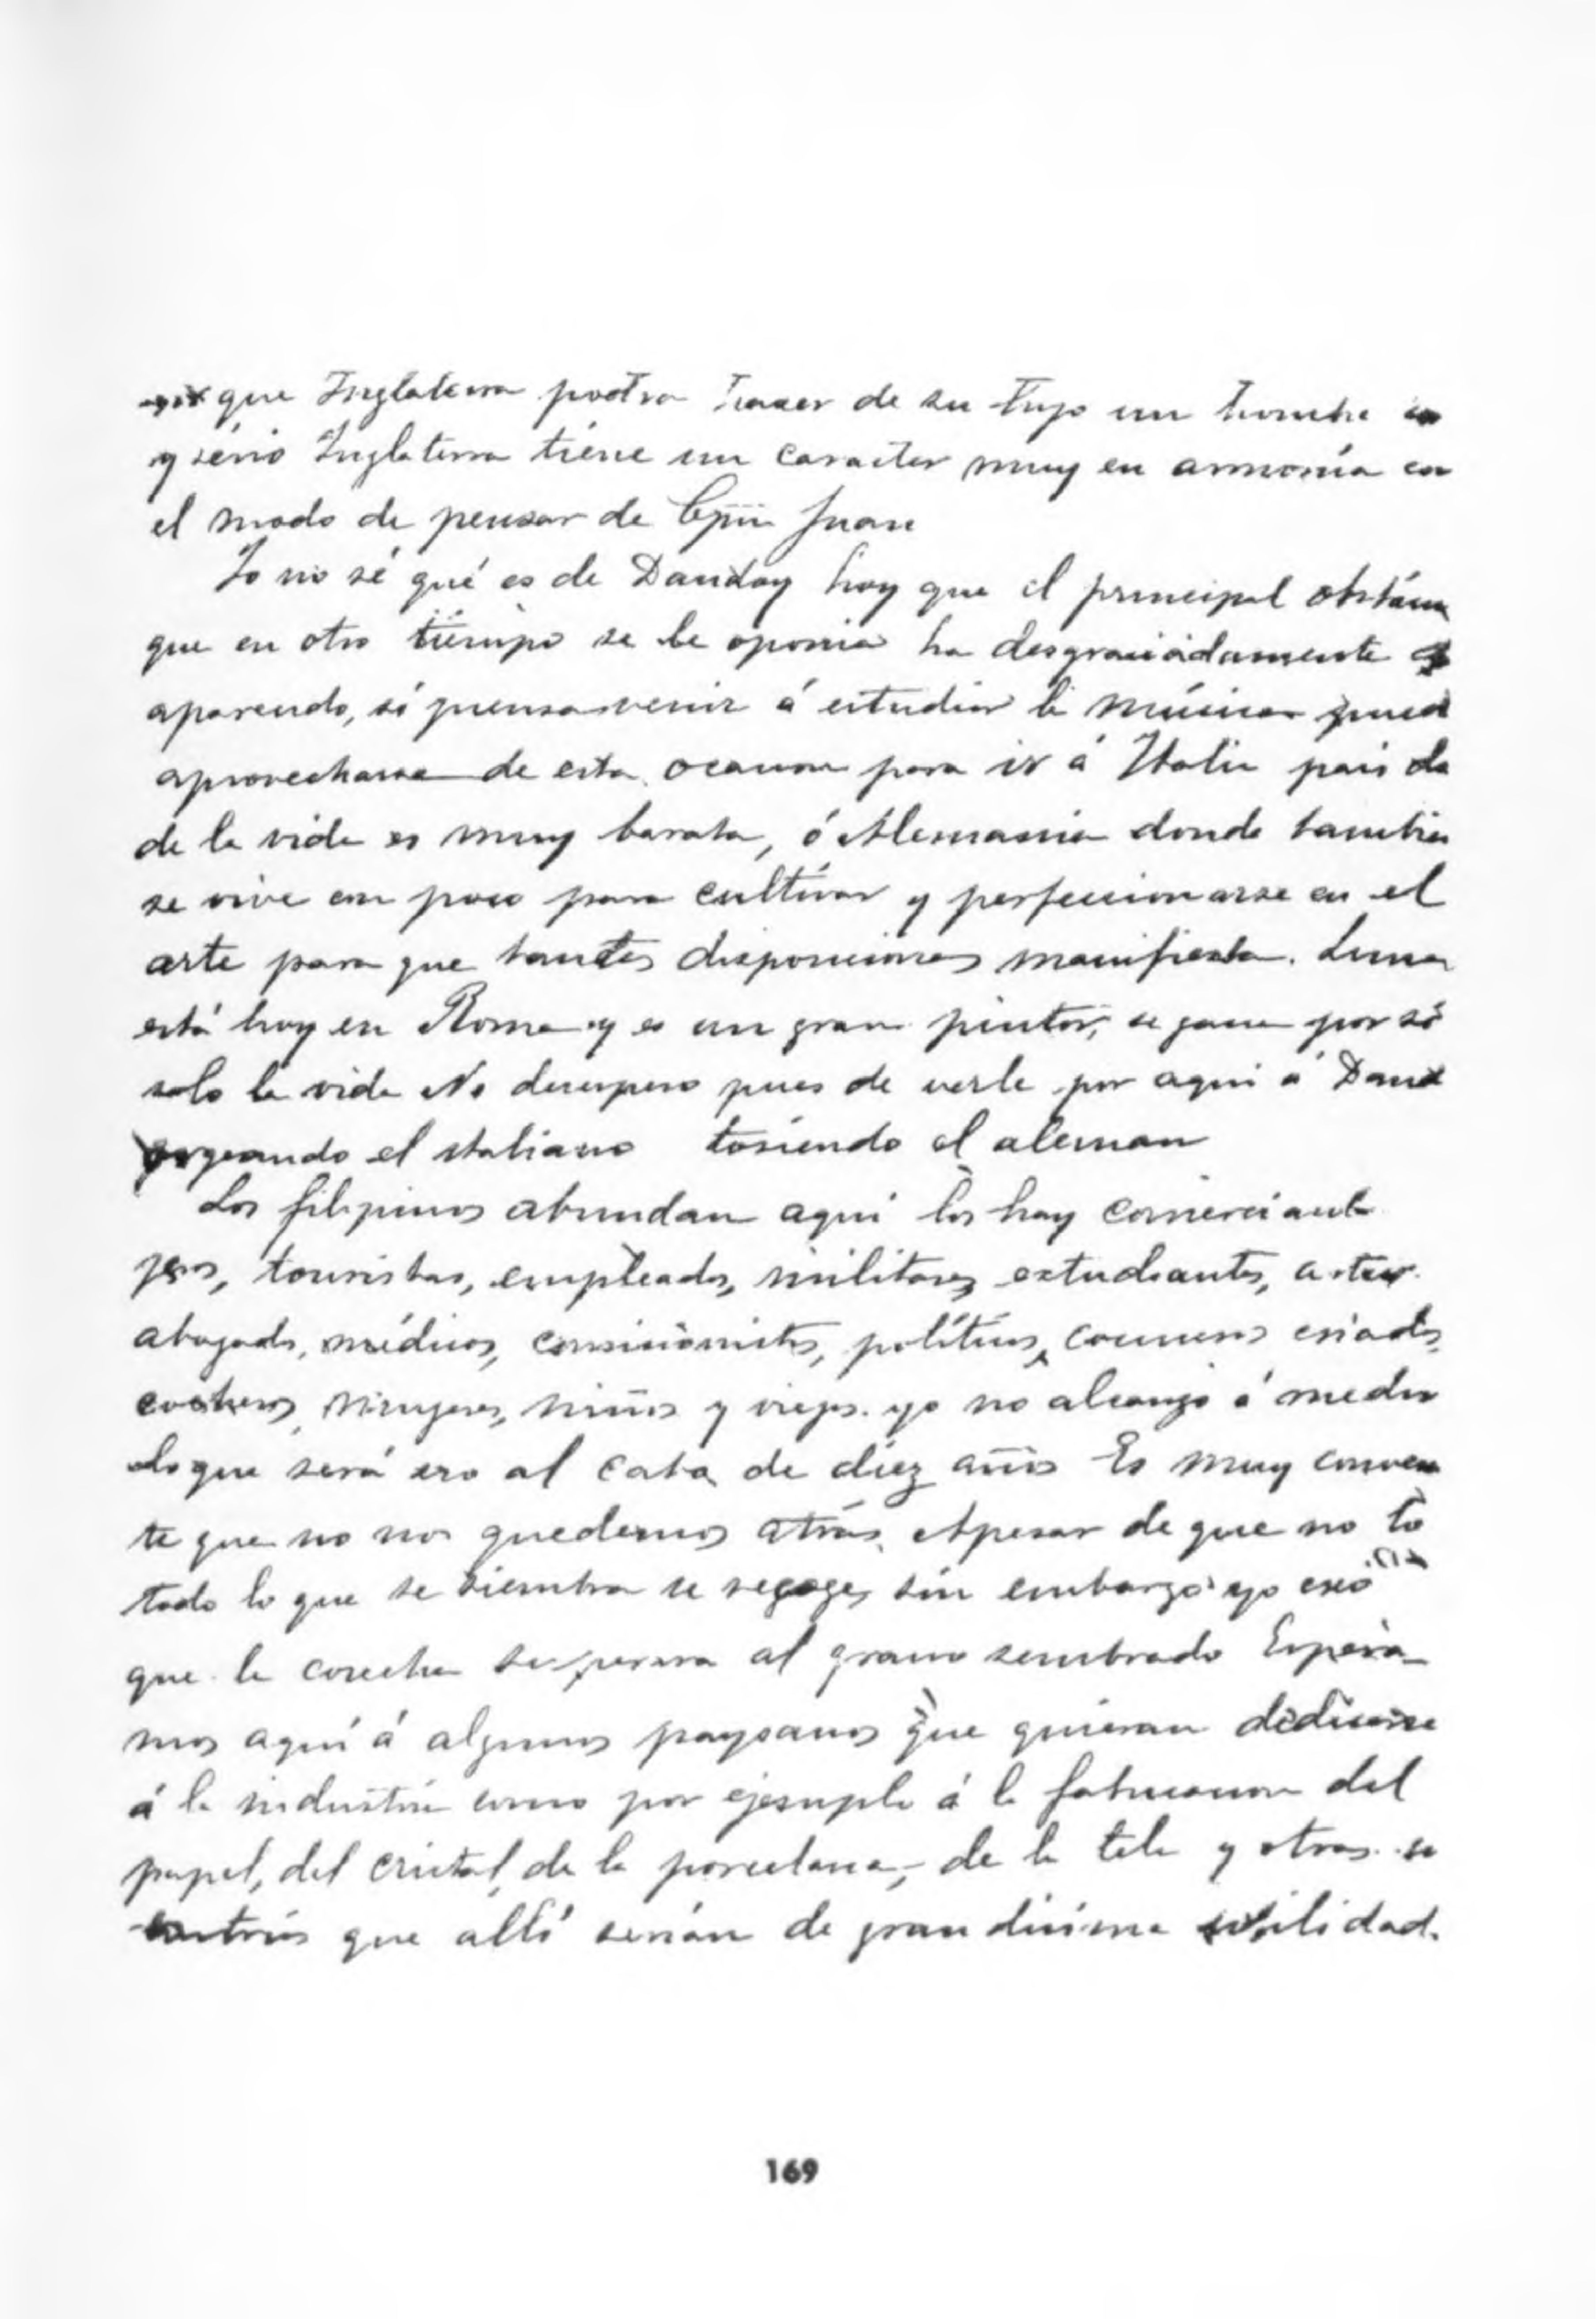 que Inglaterra podra hacer de su hijo un hombre
y sério Inglaterra tiene un caracter muy en armonía con
el modo de pensar de Juan
Yo no sé qué es de Danday hoy que el principal obstácu
que en otro tiempo se le oponia ha desgraciadamente
aparecido, si piensa venir á estudiar la música pued
aprovecharse de esta ocasion para ir á Italia pais do
de la vida es muy barata, ó Alemania donde tambien
se vive con poco para cultivar y perfeccionarse en el
arte para que tantas disposiciones manifiesta. Luna
está hoy en Roma y es un gran pintor, se gana por sí
solo la vida No desespero pues de verle por aqui á Dand
gorgeando el italiano tosiendo el aleman
Los filipinos abundan aqui los hay comerciant
jeros, touristas, empleados, militares, estudiantes, artis
abogados, médicos, comisionistas, políticos, cocineros criados,
cocheros, mujeres, niños y viejos. yo no alcanzo á medir
lo que será eso al cabo de diez años Es muy conven
te que no nos quedemos atrás. Apesar de que no to
todo lo que se siembra se recoge, sin embargo yo creo
que la cosecha superara al grano sembrado Espera-
mos aquí á algunos paysanos que quieran dedicarse
á la industria como por ejemplo á la fabricacion del
papel, del cristal, de la porcelana, de la tela y otras in
dustrias que allí serían de grandísima utilidad.
169